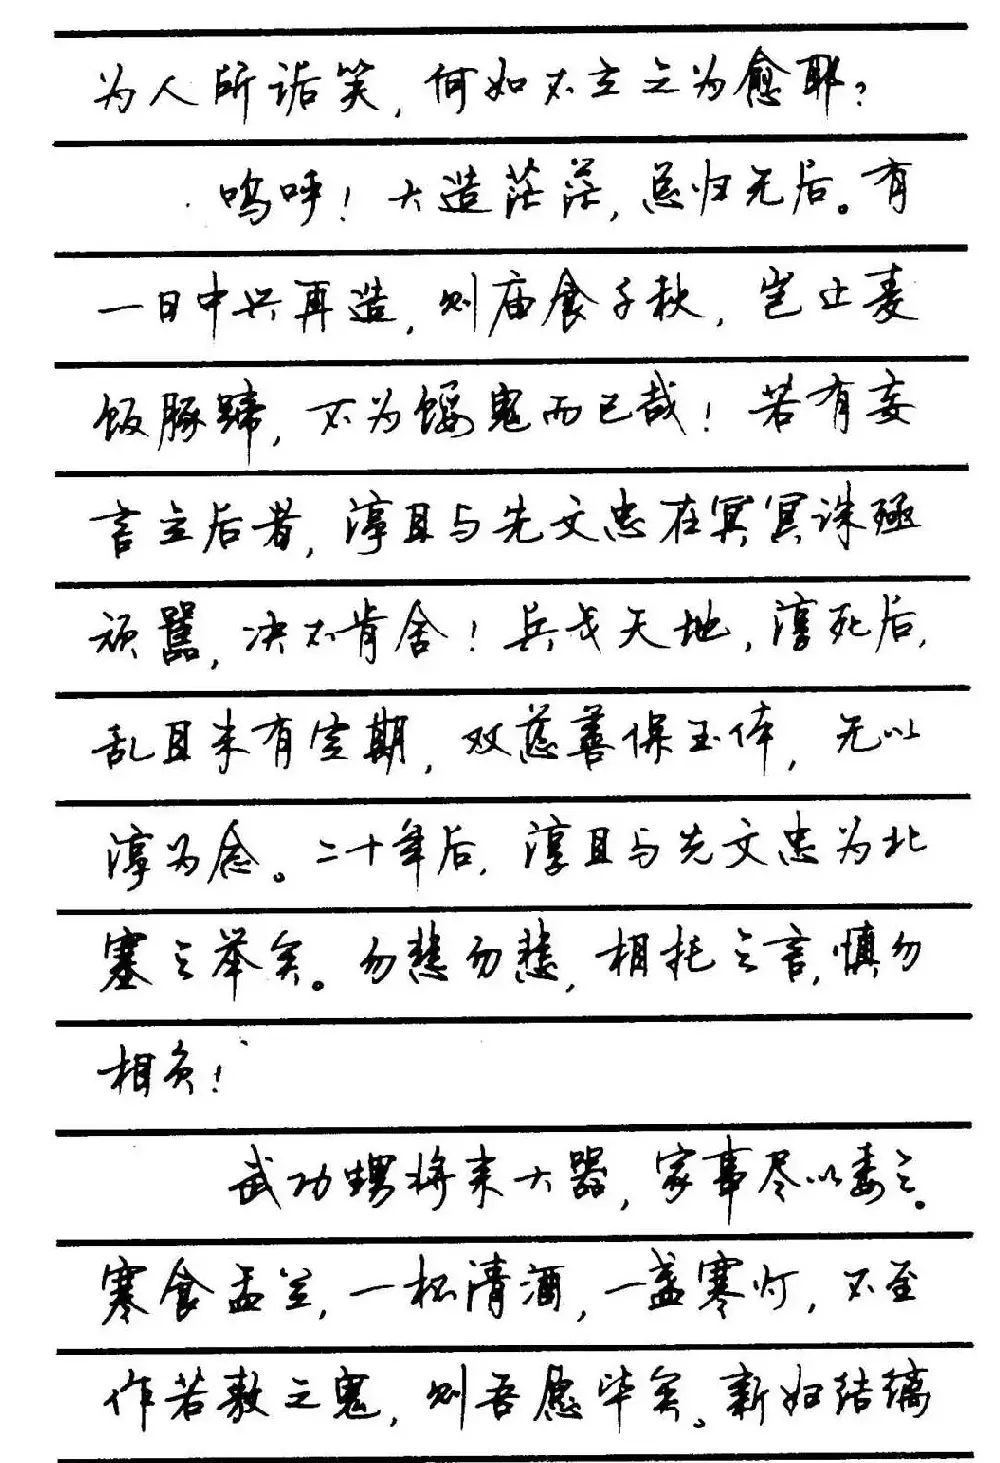 为人所诟笑，何如不立之为愈耶？
呜呼！大造茫茫，总归无后。有
一日中兴再造，则庙食千秋，岂止麦
饭豚蹄，不为馁鬼而已哉！若有妄
言立后者，淳且与先文忠在冥冥诛殛
顽嚚，决不肯舍！兵戈天地，淳死后，
乱且未有定期，双慈善保玉体，无以
淳为念。二十年后，淳且与先文忠为北
塞之举矣。勿悲勿悲，相托之言，慎勿
相负！
武功甥将来大器，家事尽以委之。
寒食盂兰，一杯清酒，一盏寒灯，不至
作若敖之鬼，则吾愿毕矣。新妇结缡